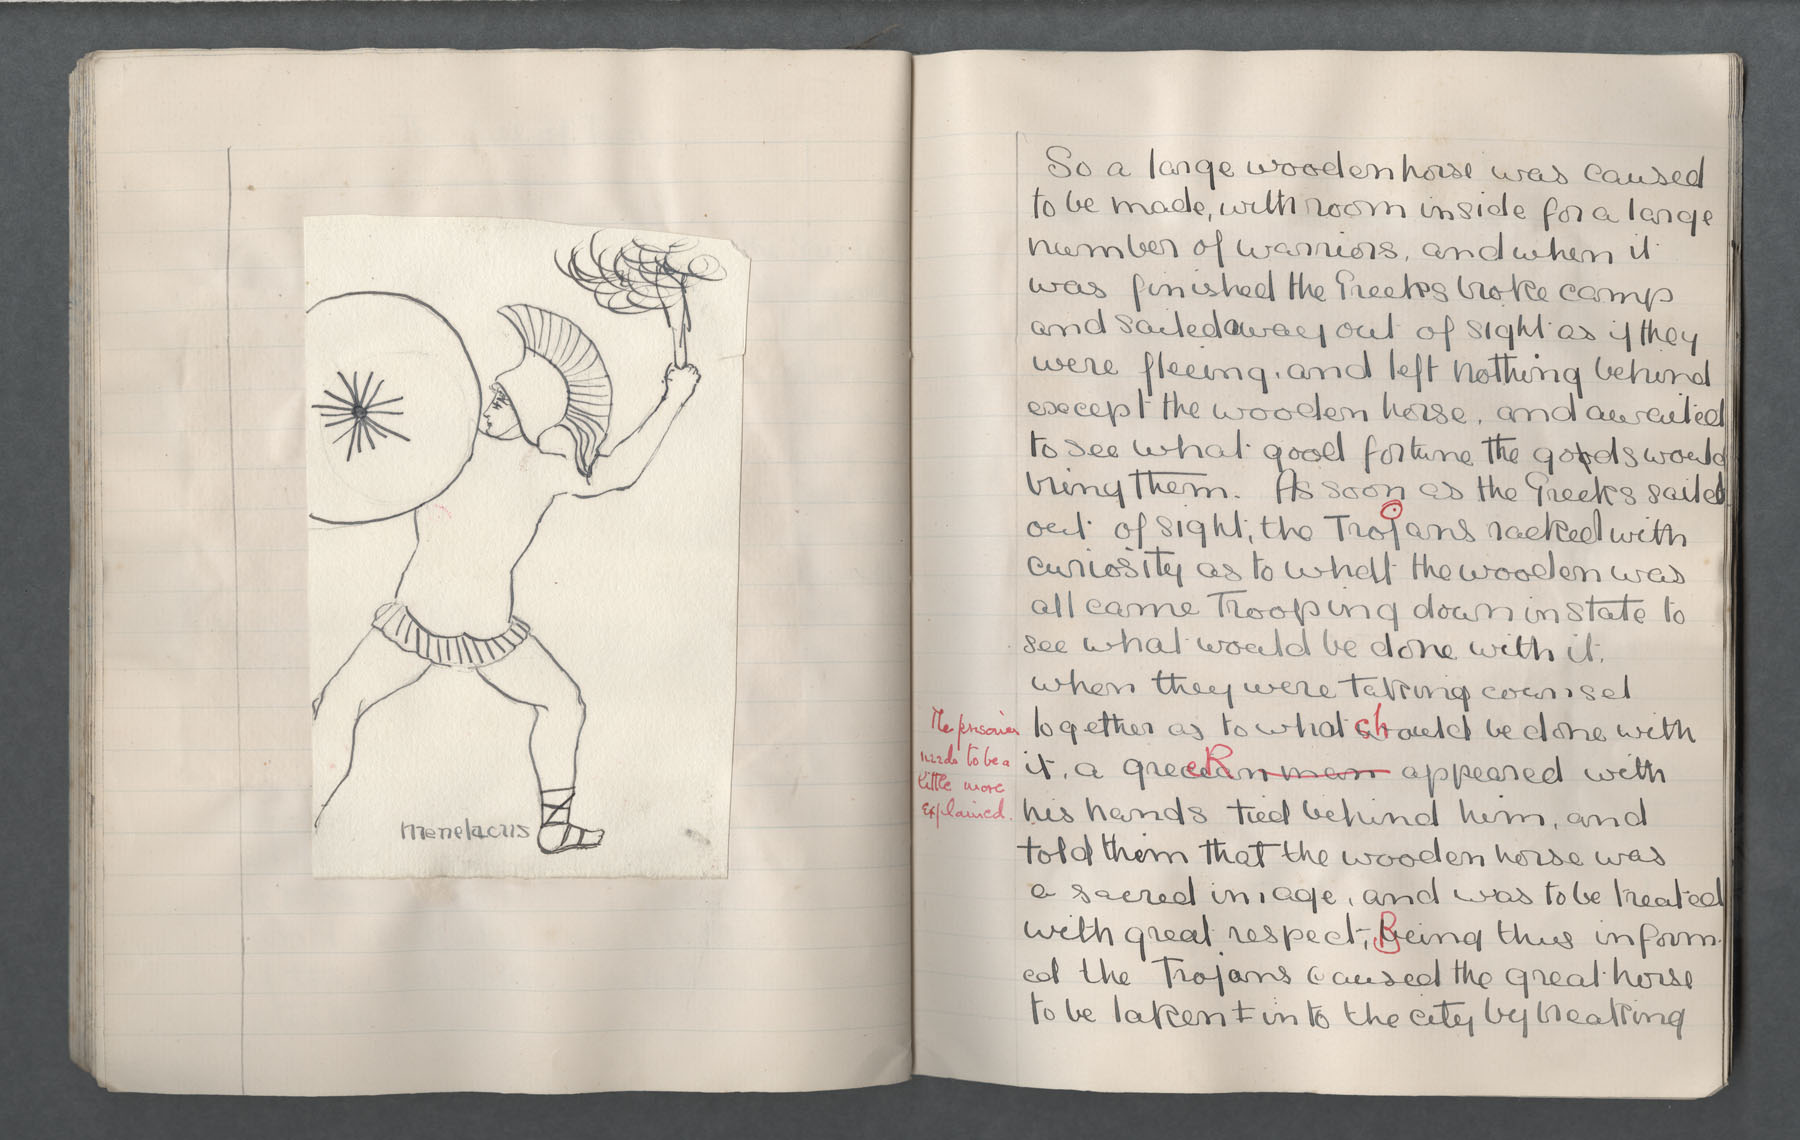 menelacus
So a large wooden horse was caused
to be made, with room inside for a large
number of warriors, and when it
was finished the Greeks broke camp
and sailed away out of sight as if they
were fleeing, and left nothing behind
except the wooden horse, and awaited
to see what good fortune the gods would
bring them. As soon as the Greeks sailed
out of sight, the Trojans racked with
curiosity as to what the wooden was
all came Trooping down in state to
see what would be done with it.
when they were taking counsel
together as to what should be done with
The prisoner
needs to be a
little more
explained.
it, a greek man appeared with
his hands tied behind him, and
told them that the wooden horse was
a sacred image, and was to be treated
with great respect, Being thus inform-
ed the Trojans caused the great horse
to be taken into the city by breaking